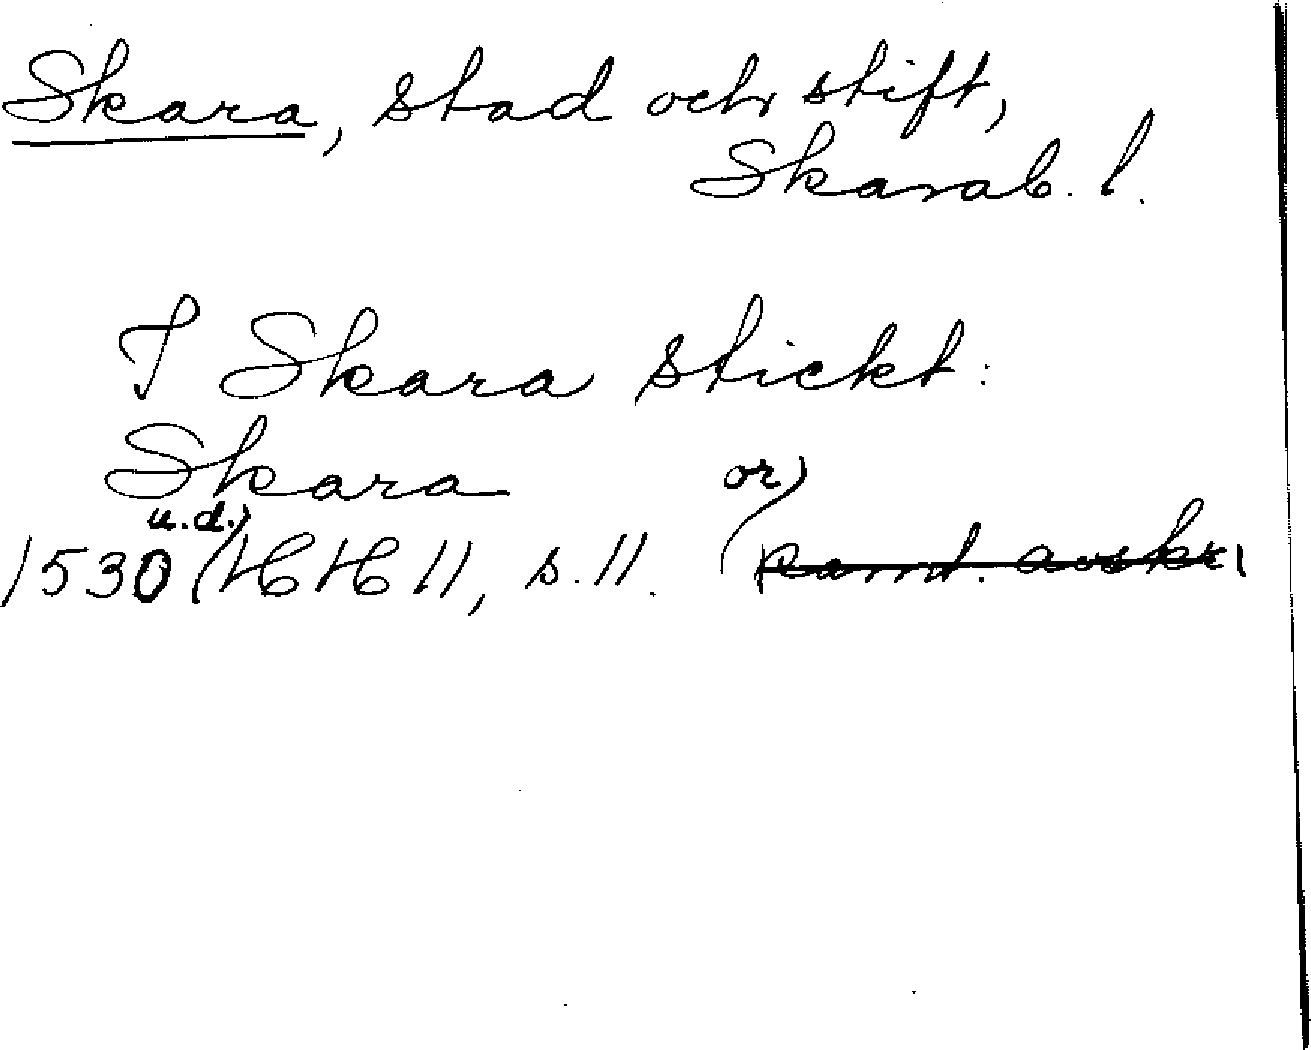 Skara, stad och stift,
Skarab. l.
I Skara stickt:
Skara
1530 u.d.) (HH 11, s. 11. (or)
samt. avskr.